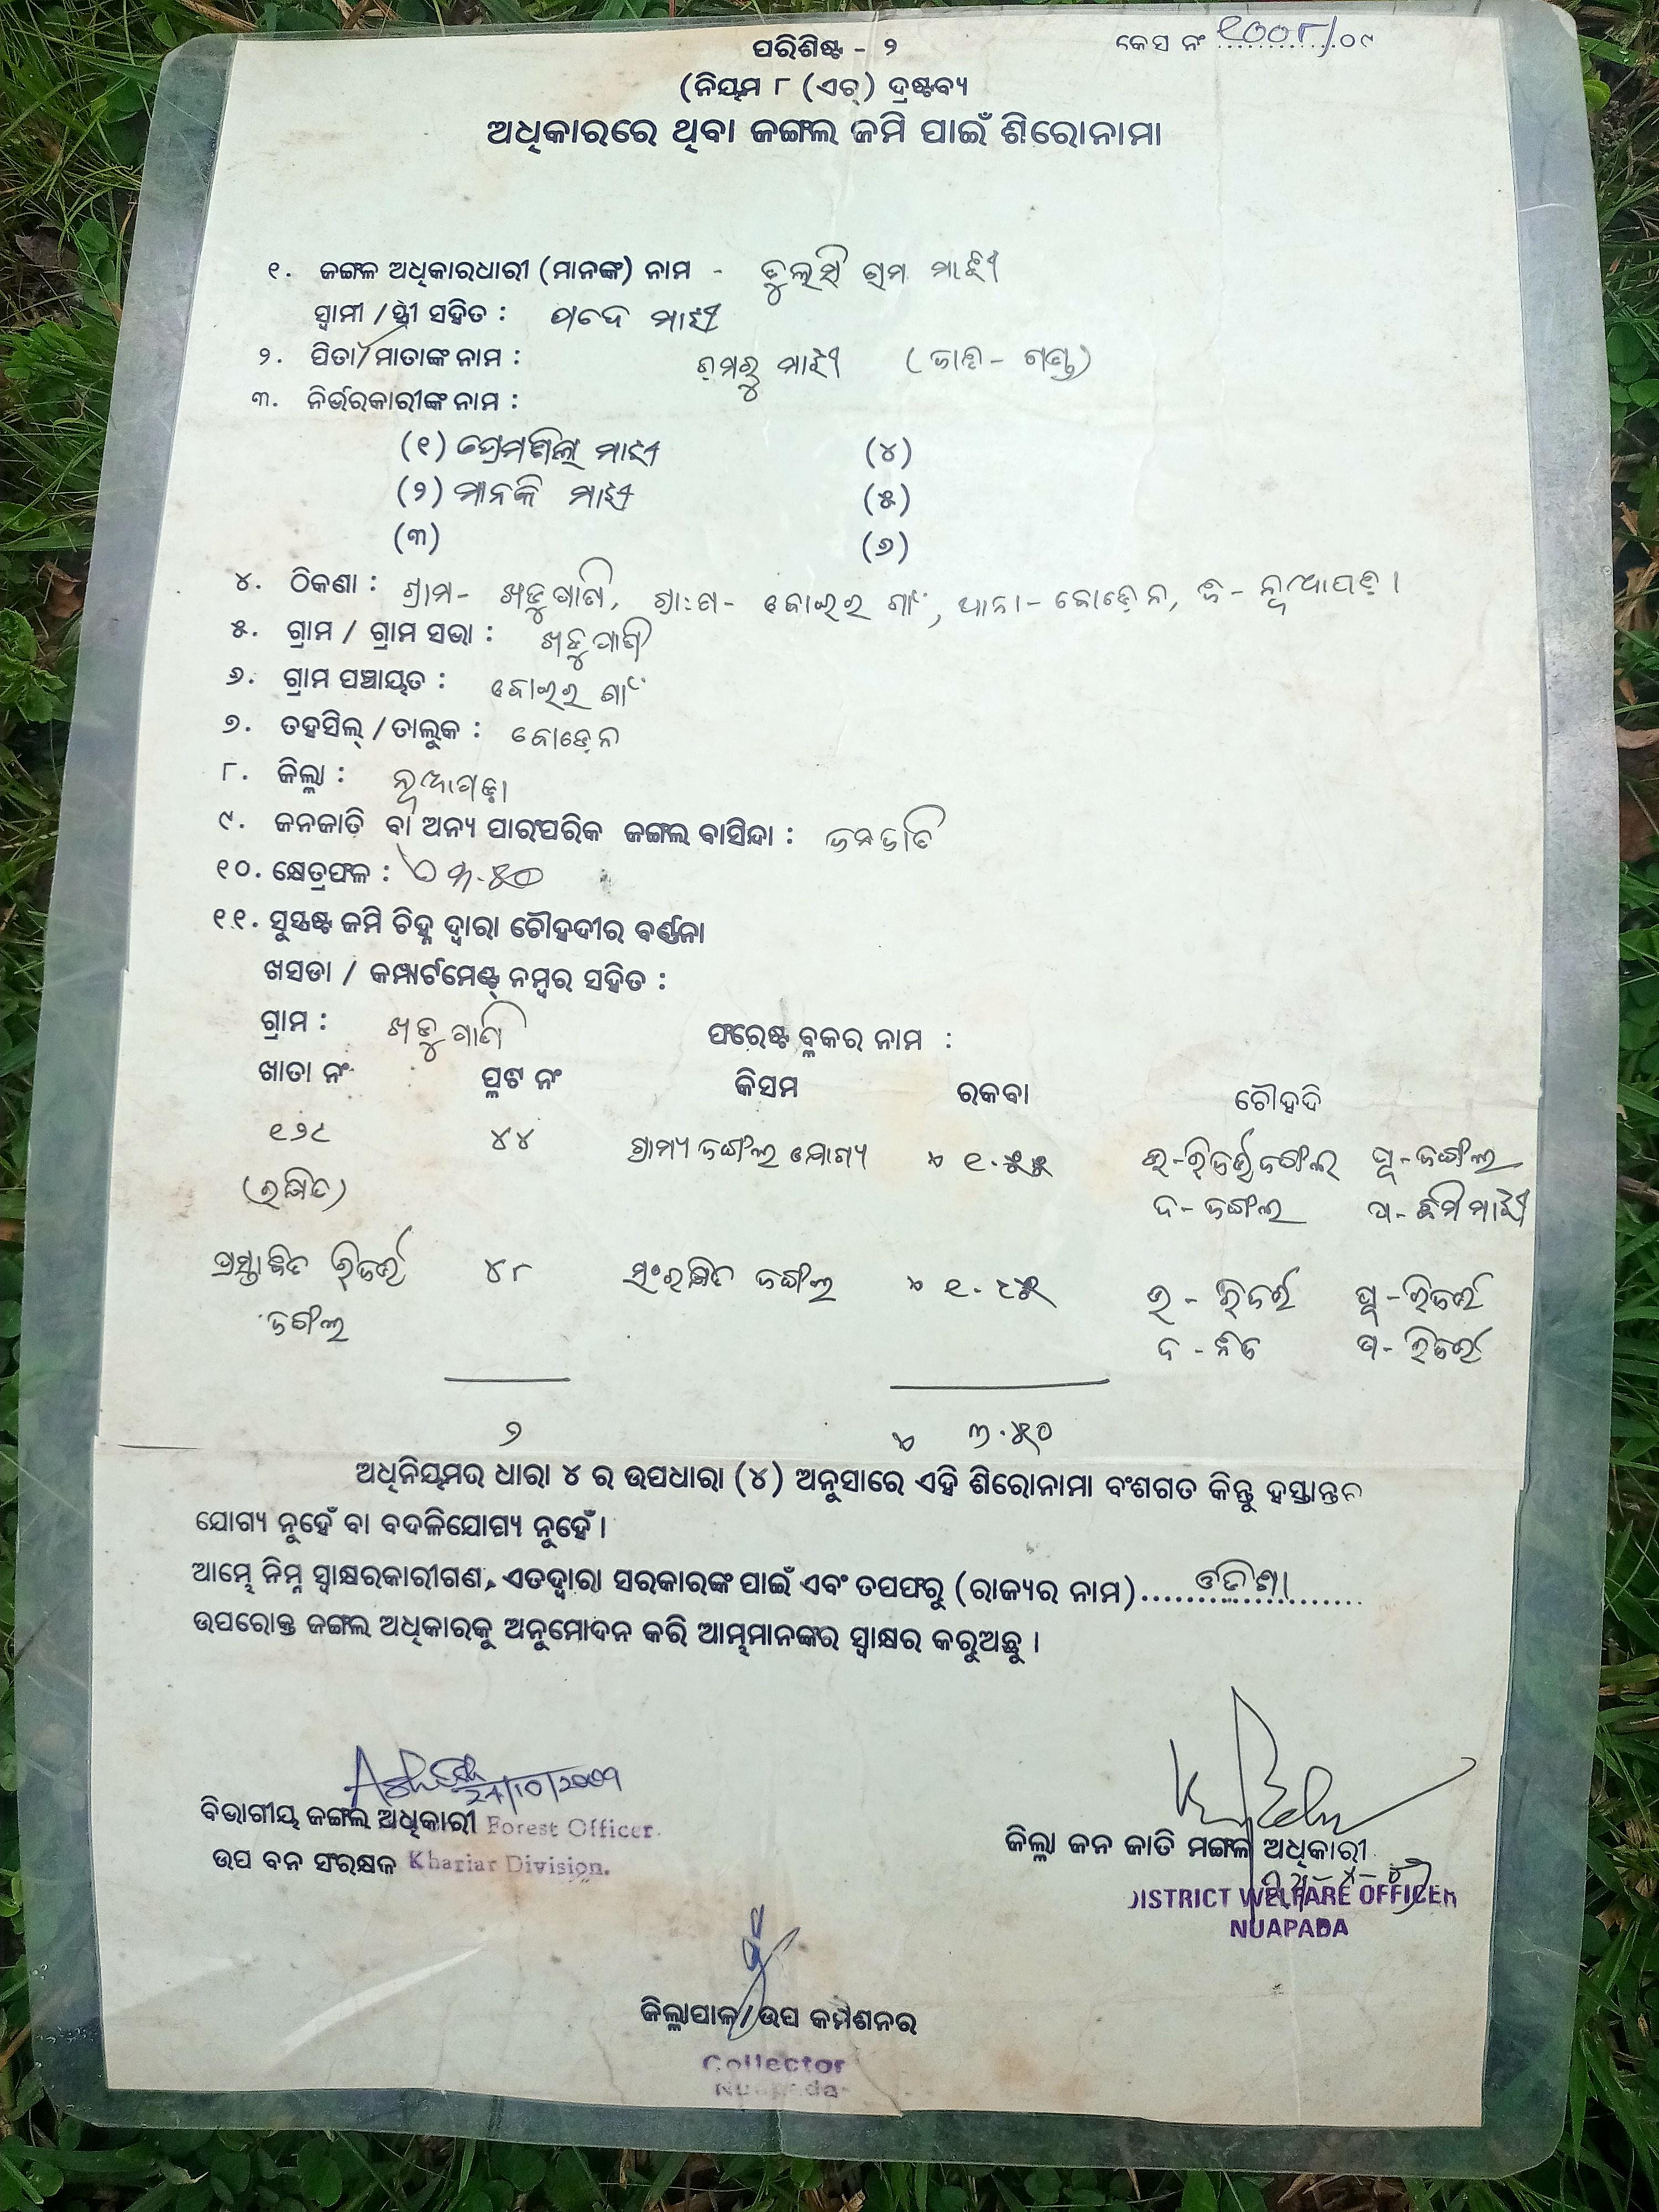 ପରିଶିଷ୍ଟ - ୨
କେସ ନଂ ୧୦୦୮/୦୯
(ନିୟମ ୮ (ଏଚ୍) ଦ୍ରଷ୍ଟବ୍ୟ
ଅଧିକାରରେ ଥିବା ଜଙ୍ଗଲ ଜମି ପାଇଁ ଶିରୋନାମା
୧. ଜଙ୍ଗଳ ଅଧିକାରଧାରୀ (ମାନଙ୍କ) ନାମ - ତୁଲସି ରାମ ମାଝୀ
ସ୍ୱାମୀ / ସ୍ତ୍ରୀ ସହିତ : ମାଝୀ
୨. ପିତା / ମାତାଙ୍କ ନାମ : ମାଝୀ (ଜାତି - ଗଣ୍ଡ)
୩. ନିର୍ଭରକାରୀଙ୍କ ନାମ :
(୧) ପ୍ରେମଶିଲା ମାଝୀ (୪)
(୨) ମାନକି ମାଝୀ (୫)
(୩) (୬)
୪. ଠିକଣା : ଗ୍ରାମ - ଖଡୁପାନି, ଗ୍ରା:ପ - ବୋଇର ଗାଁ, ଥାନା - ବୋଡ଼େନ, ଜି - ନୂଆପଡ଼ା
୫. ଗ୍ରାମ / ଗ୍ରାମ ସଭା : ଖଡୁପାନି
୬. ଗ୍ରାମ ପଞ୍ଚାୟତ :
୭. ତହସିଲ୍ / ତାଲୁକ : ବୋଡ଼େନ
୮. ଜିଲ୍ଲା : ନୂଆପଡ଼ା
୯. ଜନଜାତି ବା ଅନ୍ୟ ପାରଂପରିକ ଜଙ୍ଗଲ ବାସିନ୍ଦା : ଜନଜାତି
୧୦. କ୍ଷେତ୍ରଫଳ : ୩.୫୦
୧୧. ସୁସ୍ପଷ୍ଟ ଜମି ଚିହ୍ନ ଦ୍ୱାରା ଚୌହଦ୍ଦୀର ବର୍ଣ୍ଣନା
ଖସଡା / କମ୍ପାର୍ଟମେଣ୍ଟ୍ ନମ୍ବର ସହିତ :
ଗ୍ରାମ : ଖଡୁପାନି ଫରେଷ୍ଟ ବ୍ଲକର ନାମ :
ଖାତା ନଂ ପ୍ଲଟ ନଂ କିସମ ରକବା ଚୌହଦି
୧୨୯ ୪୪ ଗ୍ରାମ୍ୟ ଜଙ୍ଗଲ ଯୋଗ୍ୟ ୧.୫୫ ଉ-ରିଜର୍ଭ ଜଙ୍ଗଲ ପୂ-ଜଙ୍ଗଲ
(ରକ୍ଷିତ) ଦ-ଜଙ୍ଗଲ ପ- ମାଝୀ
ପ୍ରସ୍ତାବିତ ରିଜର୍ଭ ୪୮ ସଂରକ୍ଷିତ ଜଙ୍ଗଲ ୧.୯୫ ଉ - ରିଜର୍ଭ ପୂ - ରିଜର୍ଭ
ଜଙ୍ଗଲ ଦ - ନିଜ ପ - ରିଜର୍ଭ
୨ ୩.୫୦
ଅଧିନିୟମଉ ଧାରା ୪ ର ଉପଧାରା (୪) ଅନୁସାରେ ଏହି ଶିରୋନାମା ବଂଶଗତ କିନ୍ତୁ ହସ୍ତାନ୍ତର
ଯୋଗ୍ୟ ନୁହେଁ ବା ବଦଳିଯୋଗ୍ୟ ନୁହେଁ।
ଆମ୍ଭେ ନିମ୍ନ ସ୍ୱାକ୍ଷରକାରୀଗଣ, ଏତଦ୍ୱାରା ସରକାରଙ୍କ ପାଇଁ ଏବଂ ତପଫରୁ (ରାଜ୍ୟର ନାମ) ଓଡିଶା
ଉପରୋକ୍ତ ଜଙ୍ଗଲ ଅଧିକାରକୁ ଅନୁମୋଦନ କରି ଆମ୍ଭମାନଙ୍କର ସ୍ୱାକ୍ଷର କରୁଅଛୁ।
24/10/2009
ବିଭାଗୀୟ ଜଙ୍ଗଲ ଅଧିକାରୀ Forest Officer.
ଉପ ବନ ସଂରକ୍ଷକ Khariar Division.
ଜିଲ୍ଲା ଜନ ଜାତି ମଙ୍ଗଳ ଅଧିକାରୀ
DISTRICT WELFARE OFFICER
NUAPADA
ଜିଲ୍ଲାପାଳ / ଉପ କମିଶନର
Collector
Nuapada